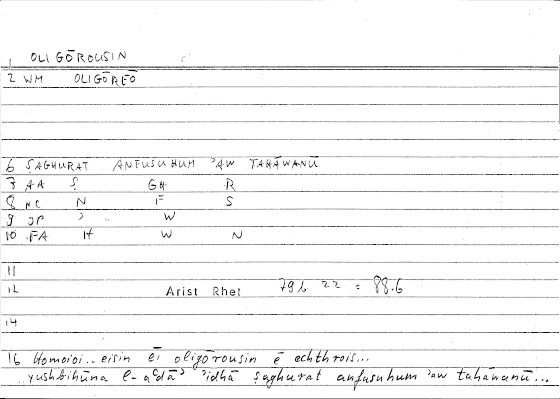 1 OLIGŌROUSIN
2 WM OLIGŌREŌ
6 ṢAGHURAT ANFUSUHUM ʾAW TAHĀWANŪ
7 AA Ṣ GH R
8 NC N F S
9 JP ʾ W
10 FA H W N
11
12 Arist Rhet 79b 22 = 88.6
14
16 Homoioi.. eisin ēi oligōrousin ē echthrois...
yushbihūna l-aʿdāʾ ʾidhā ṣaghurat anfusuhum ʾaw tahāwanū...